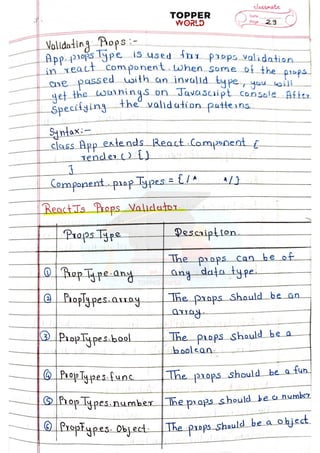 TOPPER
WORLD
classmate
Date
Page 29
Validating Props :-
App.propsType is used for props validation
in react component. When some of the props
are passed with an invalid type, you will
get the warnings on Javascript console After
Specifying the validation patterns.
Syntax:-
class App extends React Component {
render () {}
}
Component.propTypes = {/* */}
ReactJs Props Validator
Props Type Description.
① PropType.any The props can be of
any data type.
② PropTypes.array The props should be an
array.
③ PropTypes.bool The props should be a
boolean.
④ PropTypes.func The props should be a fun
⑤ PropTypes.number The props should be a number
⑥ PropTypes.Object The props should be a object